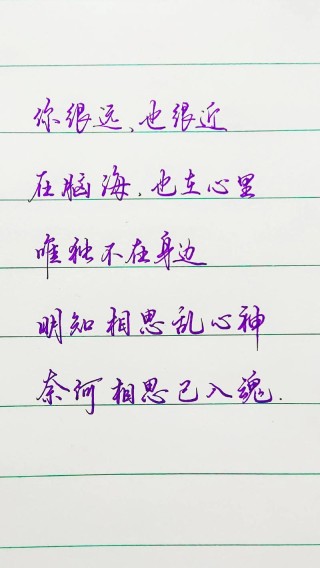 你很远、也很近
在脑海、也在心里
唯独不在身边
明知相思乱心神
奈何相思已入魂.